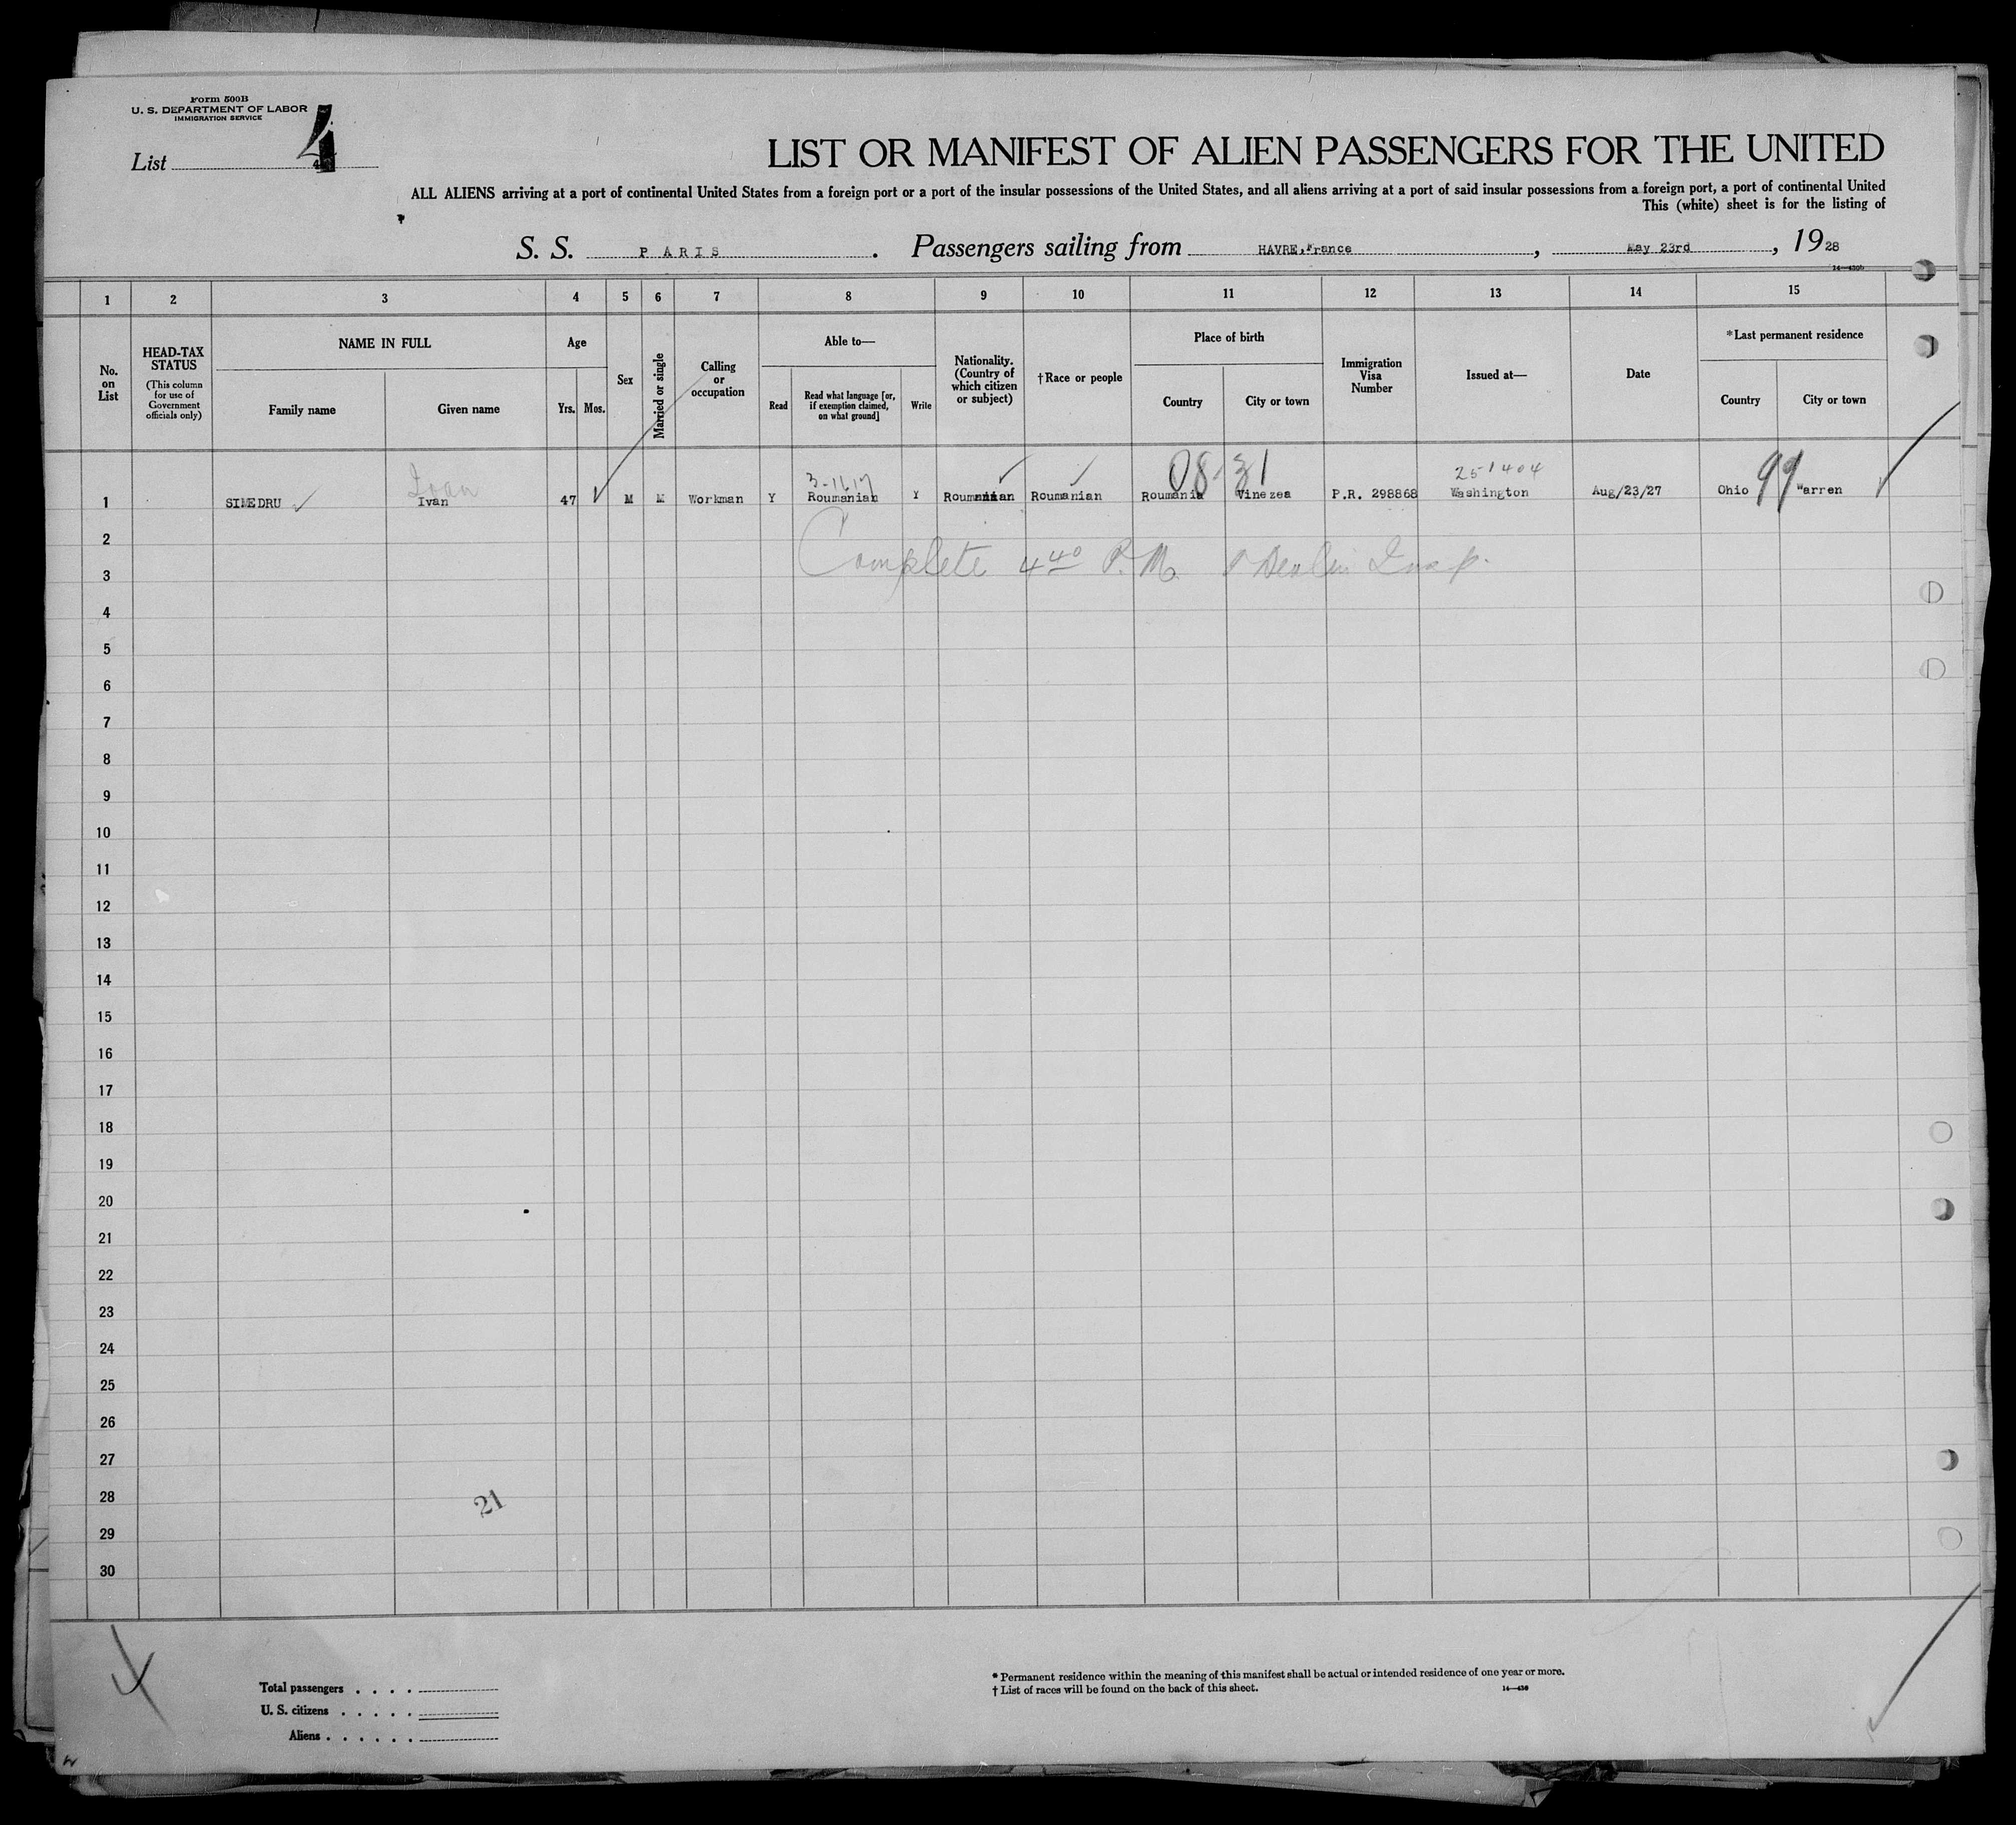 Form 500B
U. S. DEPARTMENT OF LABOR
IMMIGRATION SERVICE
List 4
4
LIST OR MANIFEST OF ALIEN PASSENGERS FOR THE UNITED
ALL ALIENS arriving at a port of continental United States from a foreign port or a port of the insular possessions of the United States, and all aliens arriving at a port of said insular possessions from a foreign port, a port of continental United
This (white) sheet is for the listing of
S. S. PARIS. Passengers sailing from HAVRE, France, May 23rd, 1928
14—430b
1 2 3 4 5 6 7 8 9 10 11 12 13 14 15
No. on List
HEAD-TAX STATUS (This column for use of Government officials only)
NAME IN FULL
Family name
Given name
Age
Yrs.
Mos.
Sex
Married or single
Calling or occupation
Able to—
Read
Read what language [or, if exemption claimed, on what ground]
Write
Nationality. (Country of which citizen or subject)
†Race or people
Place of birth
Country
City or town
Immigration Visa Number
Issued at—
Date
*Last permanent residence
Country
City or town
Ioan 08 31 251404 99
1 SIMEDRU ✓ Ivan 47 ✓ M M Workman Y Roumanian Y Roumanian ✓ Roumanian ✓ Roumania Vinezea P.R. 298868 Washington Aug/23/27 Ohio Warren
2
Complete 4 40 P.M. Insp.
3
4
5
6
7
8
9
10
11
12
13
14
15
16
17
18
19
20
21
22
23
24
25
26
27
28
21
29
30
Total passengers . . . .
U. S. citizens . . . . .
Aliens . . . . . .
* Permanent residence within the meaning of this manifest shall be actual or intended residence of one year or more.
† List of races will be found on the back of this sheet.
14—430